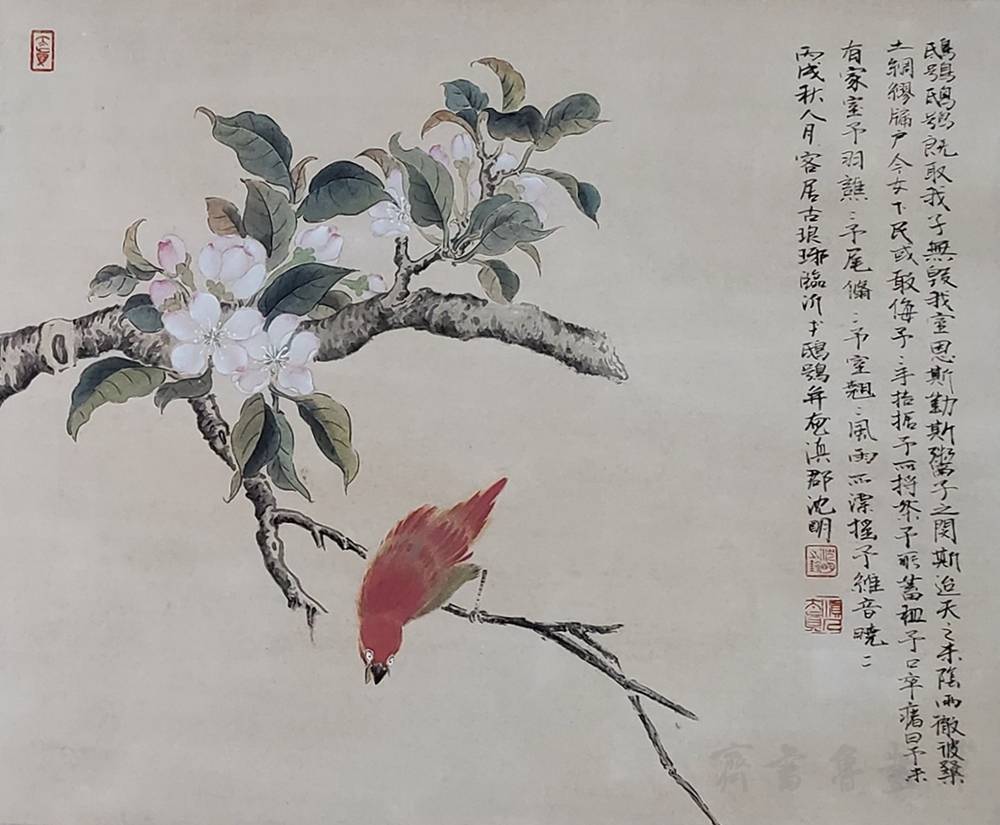 鴟鴞鴟鴞既取我子無毀我室恩斯勤斯鬻子之閔斯迨天之未陰雨徹彼桑
土綢繆牖戶今女下民或敢侮予〻手拮据予所捋荼予所蓄租予口卒瘏曰予未
有家室予羽譙〻予尾翛〻予室翹〻風雨所漂搖予維音曉〻
丙戌秋八月客居古琅琊臨沂书鴟鴞并画滇郡沈明